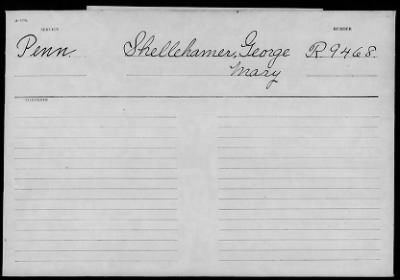 SERVICE NUMBER
Penn. Shellehamer, George R. 9468.
Mary